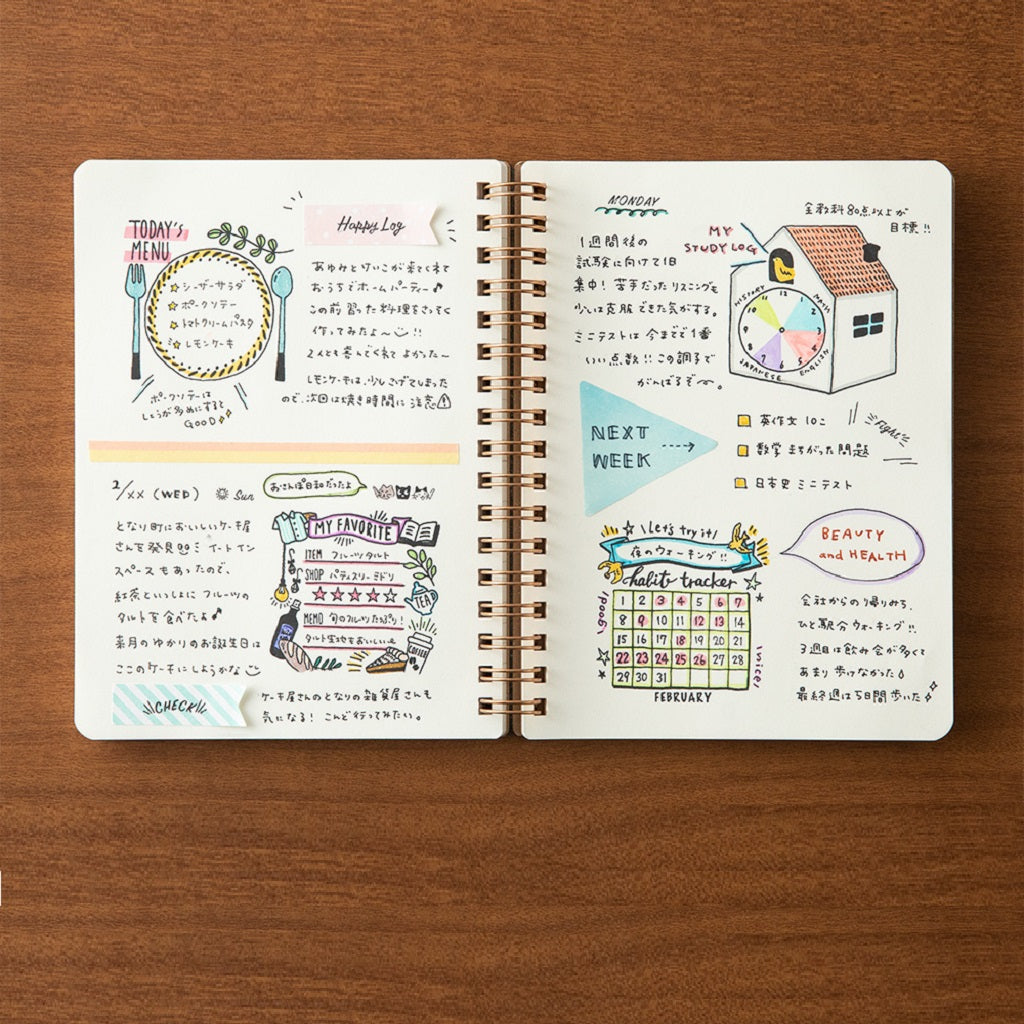 TODAY'S
MENU
シーザーサラダ
ポークソテー
トマトクリームパスタ
レモンケーキ
ポークソテーは
しょうが多めにすると
GOOD
Happy Log
あゆみとけいこが来てくれて
おうちでホームパーティー♪
この前習った料理をさっそく
作ってみたよ〜!!
2人とも喜んでくれてよかった〜
レモンケーキは、少しこげてしまった
ので、次回は焼き時間に注意
2/××(WED) Sun
おさんぽ日和だったよ
となり町においしいケーキ屋
さんを発見 イートイン
スペースもあったので、
紅茶といっしょに フルーツの
タルトを食べたよ♪
来月のゆかりのお誕生日は
ここのケーキにしようかな
MY FAVORITE
ITEM フルーツタルト
SHOP パティスリーミドリ
★★★★★
MEMO 旬のフルーツたっぷり!
タルト生地もおいしい
TEA
COFFEE
CHECK!
ケーキ屋さんのとなりの雑貨屋さんも
気になる! こんど行ってみたい。
MONDAY
1週間後の
試験に向けて1日
集中! 苦手だったリスニングも
少しは克服できた気がする。
ミニテストは今までで1番
いい点数!! この調子で
がんばるぞ〜。
MY
STUDY LOG
全教科80点以上が
目標!!
HISTORY
MATH
ENGLISH
JAPANESE
NEXT
WEEK
英作文 10こ
数学 まちがった問題
日本史 ミニテスト
Fight
Let's try it!
夜のウォーキング!!
habit tracker
good!
nice!
1 2 3 4 5 6 7
8 9 10 11 12 13 14
15 16 17 18 19 20 21
22 23 24 25 26 27 28
29 30 31
FEBRUARY
BEAUTY
and HEALTH
会社からの帰りみち、
ひと駅分ウォーキング!!
3週目は飲み会が多くて
あまり歩けなかった
最終週は5日間歩いた